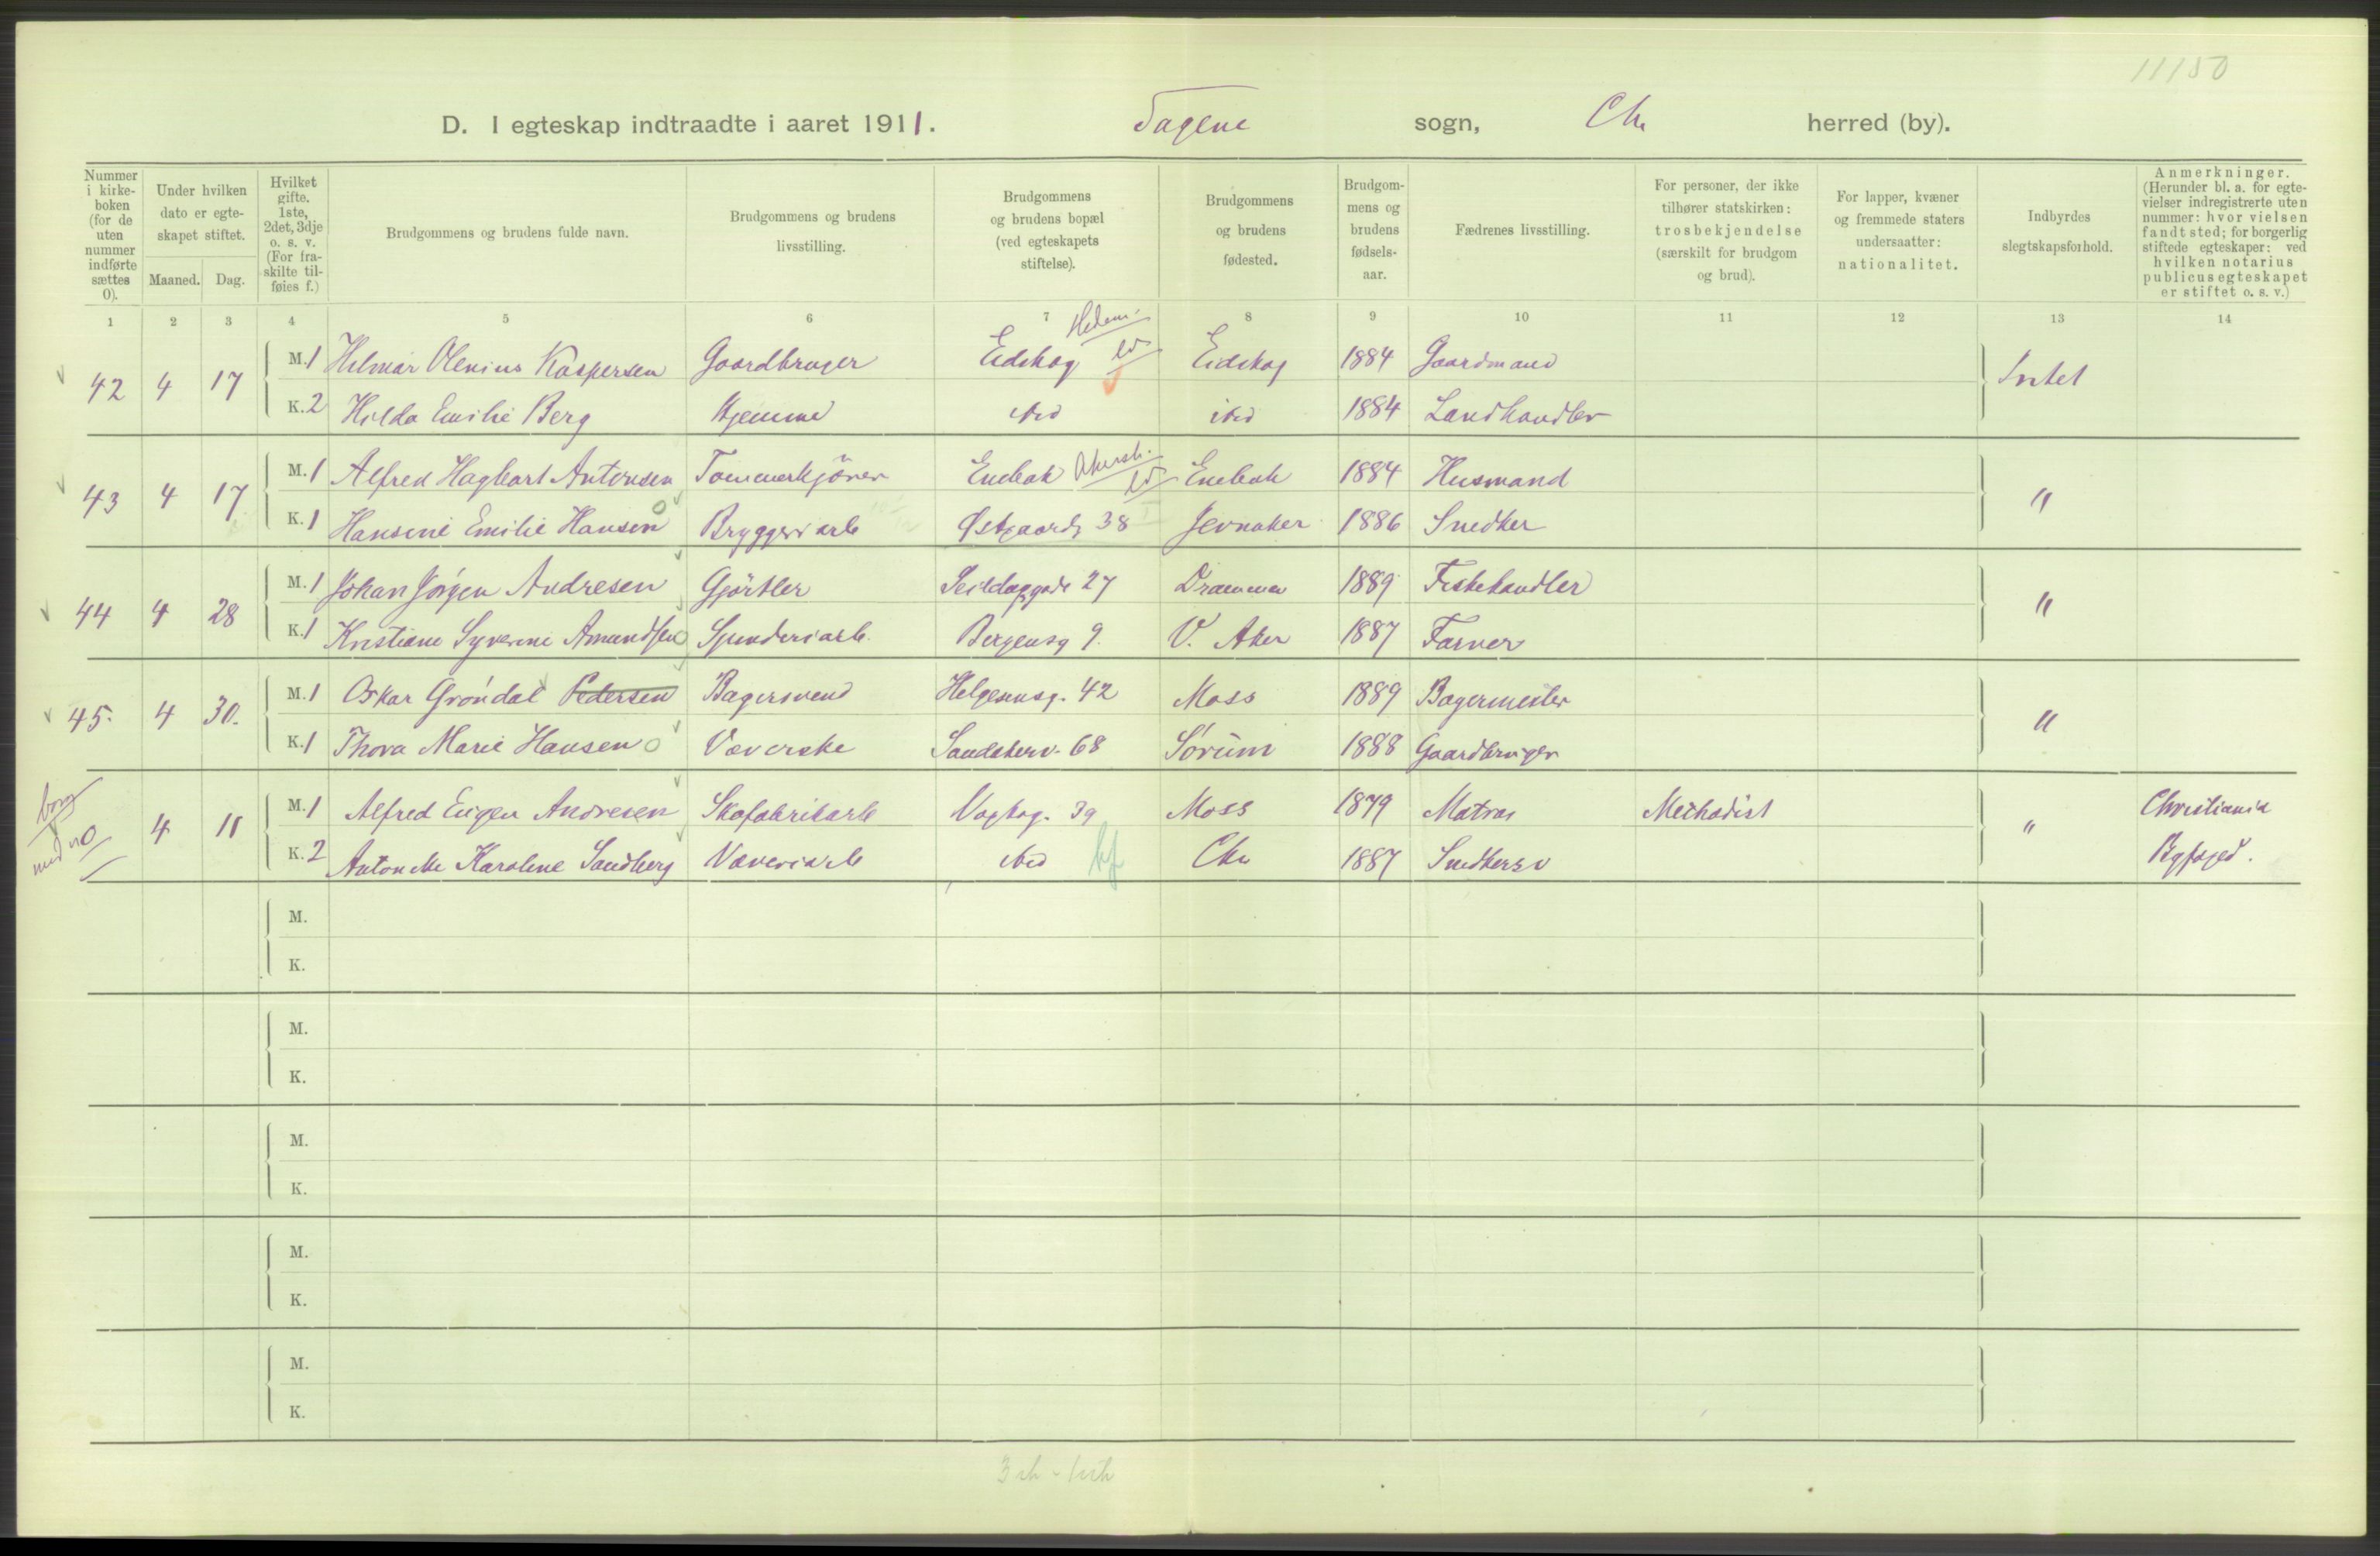 11150
D. I egteskap indtraadte i aaret 1911. Sagene sogn, Chr herred (by).
Nummer i kirkeboken (for de uten nummer indførte sættes 0).
Under hvilken dato er egteskapet stiftet.
Maaned. Dag.
Hvilket gifte. 1ste, 2det, 3dje o. s. v. (For fraskilte tilføies f.)
Brudgommens og brudens fulde navn.
Brudgommens og brudens livsstilling.
Brudgommens og brudens bopæl (ved egteskapets stiftelse).
Brudgommens og brudens fødested.
Brudgommens og brudens fødselsaar.
Fædrenes livsstilling.
For personer, der ikke tilhører statskirken: trosbekjendelse (særskilt for brudgom og brud).
For lapper, kvæner og fremmede staters undersaatter: nationalitet.
Indbyrdes slegtskapsforhold.
Anmerkninger. (Herunder bl. a. for egtevielser indregistrerte uten nummer: hvor vielsen fandt sted; for borgerlig stiftede egteskaper: ved hvilken notarius publicus egteskapet er stiftet o. s. v.)
1 2 3 4 5 6 7 8 9 10 11 12 13 14
42 4 17 M. 1 Hilmar Olenius Kaspersen Gaardbruger Eidskog Hedem. Eidskog 1884 Gaardmand Intet
K. 2 Hilda Emilie Berg Hjemme ibid ibid 1884 Landhandler
43 4 17 M. 1 Alfred Hagbart Antonsen Tømmerkjører Enebak Akersh. Enebak 1884 Husmand "
K. 1 Hansine Emilie Hansen Bryggeriarb Østgaardsg 38 Jevnaker 1886 Snedker
44 4 28 M. 1 Johan Jörgen Andresen Gjörtler Seildugsgade 27 Drammen 1889 Fiskehandler "
K. 1 Kristiane Syverine Amundsen Spinderiarb. Bergensg 9. V. Aker 1887 Farver
45. 4 30. M. 1 Oskar Gröndal Pedersen Bagersvend Helgesensg. 42 Moss 1889 Bagermester "
K. 1 Thora Marie Hansen Væverske Sandakerv. 68 Sörum 1888 Gaardbruger
0 4 11 M. 1 Alfred Eugen Andresen Skofabrikarb Vogtsg. 39 Moss 1879 Matros Methodist " Christiania
K. 2 Antonette Karoline Sandberg Væveriarb ibid Chr 1887 Snedkersv Byfoged.
M.
K.
M.
K.
M.
K.
M.
K.
M.
K.